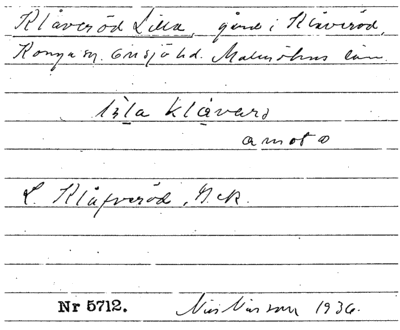 Klåveröd Lilla, gård i Klåveröd,
Konga sn. Onsjö hd. Malmöhus län.
lila klåvarö
a mot ö
L. Klåfveröd, Gek.
Nr 5712. Nils Nilsson 1936.